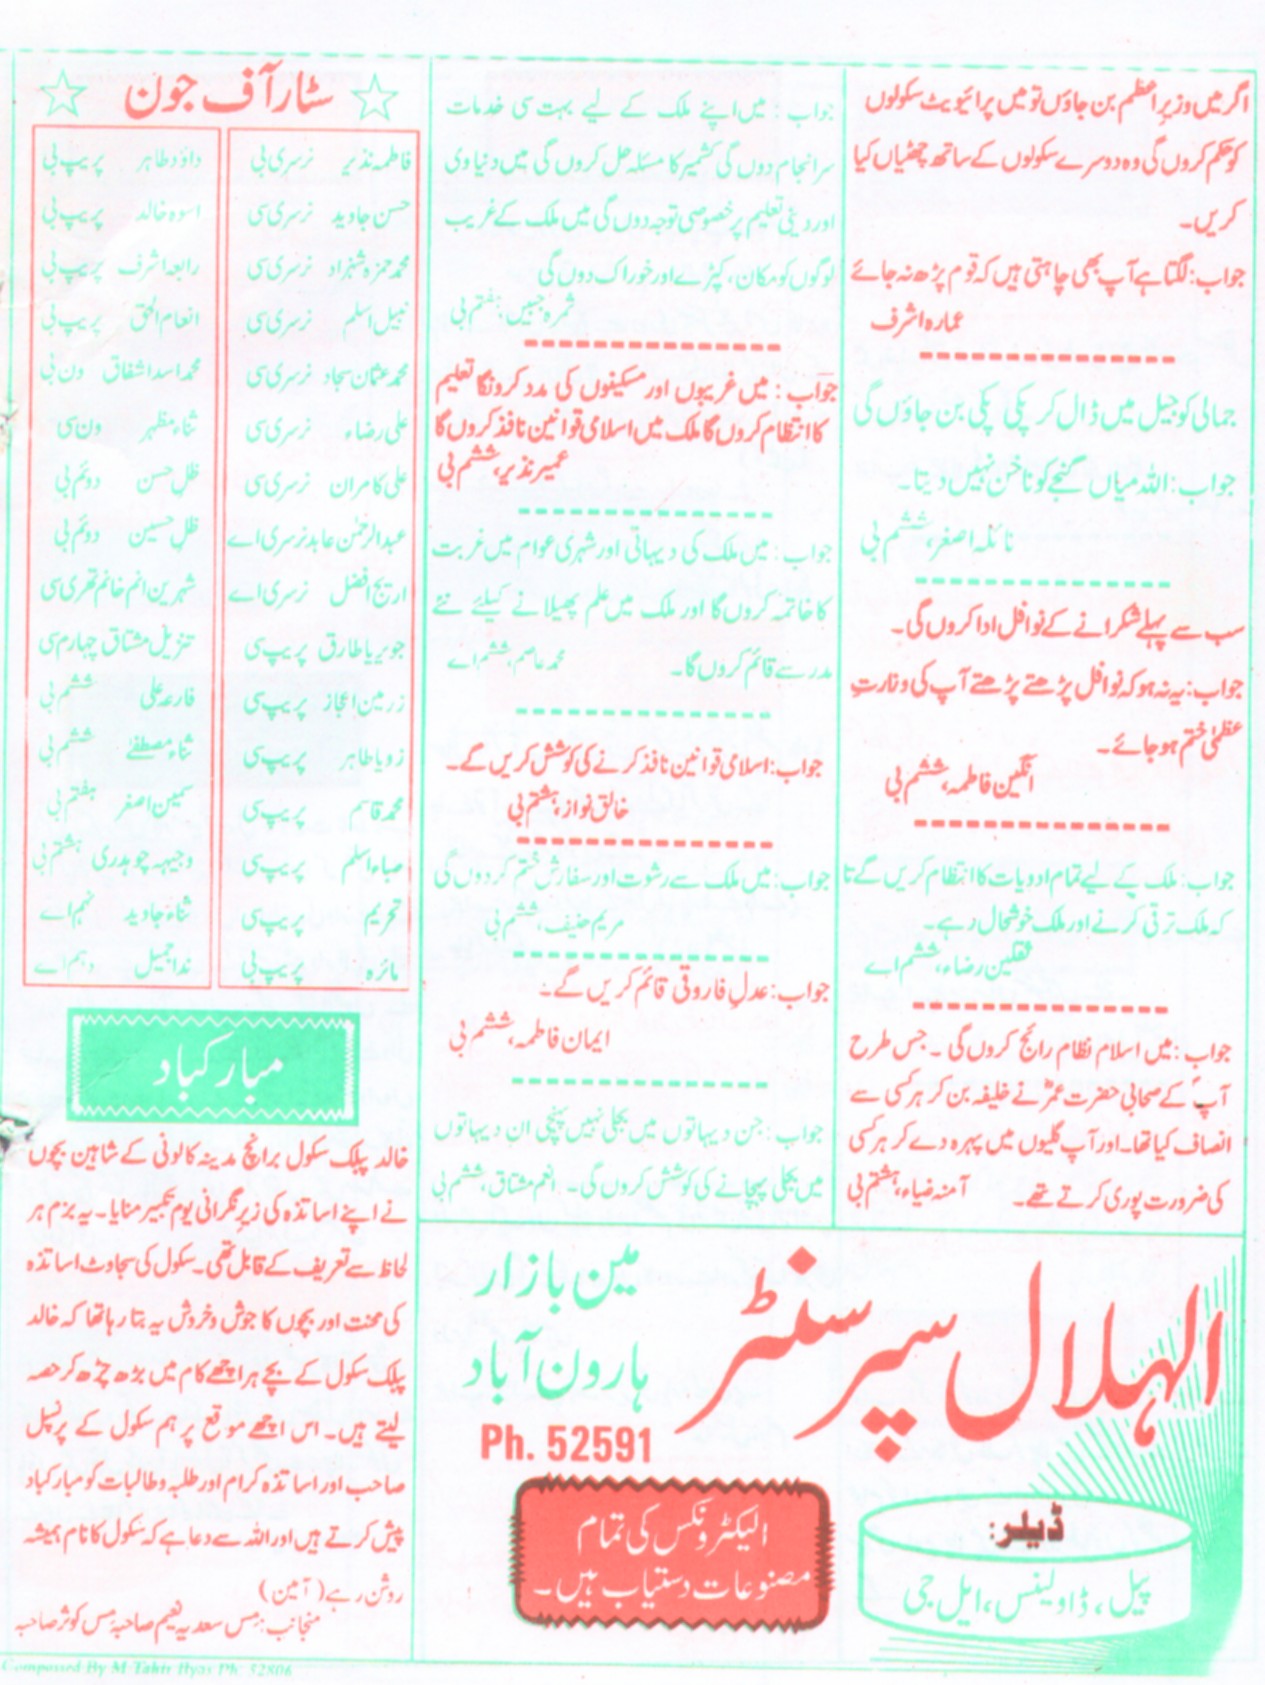 اگر میں وزیرِ اعظم بن جاؤں تو میں پرائیویٹ سکولوں
کو حکم کروں گی وہ دوسرے سکولوں کے ساتھ چھٹیاں کیا
کریں۔
جواب: لگتا ہے آپ بھی چاہتی ہیں کہ قوم پڑھ نہ جائے
عمارہ اشرف
جمالی کو جیل میں ڈال کر پکی پکی بن جاؤں گی
جواب: اللہ میاں گنجے کو ناخن نہیں دیتا۔
نائلہ اصغر، ششم بی
سب سے پہلے شکرانے کے نوافل ادا کروں گی۔
جواب: یہ نہ ہو کہ نوافل پڑھتے پڑھتے آپ کی وزارتِ
عظمٰی ختم ہو جائے۔
انگبین فاطمہ، ششم بی
جواب: ملک کے لیے تمام ادویات کا انتظام کریں گے تا
کہ ملک ترقی کرے اور ملک خوشحال رہے۔
ثقلین رضاء، ششم اے
جواب: میں اسلام نظام رائج کروں گی۔ جس طرح
آپؐ کے صحابی حضرت عمرؓ نے خلیفہ بن کر ہر کسی سے
انصاف کیا تھا۔ اور آپ گلیوں میں پہرہ دے کر ہر کسی
کی ضرورت پوری کرتے تھے۔ آمنہ ضیاء، ہشتم بی
جواب: میں اپنے ملک کے لیے بہت سی خدمات
سر انجام دوں گی کشمیر کا مسئلہ حل کروں گی میں دنیاوی
اور دینی تعلیم پر خصوصی توجہ دوں گی میں ملک کے غریب
لوگوں کو مکان، کپڑے اور خوراک دوں گی
ثمرہ جبیں، ہفتم بی
جواب: میں غریبوں اور مسکینوں کی مدد کرونگا تعلیم
کا انتظام کروں گا ملک میں اسلامی قوانین نافذ کروں گا
عمیر نذیر، ششم بی
جواب: میں ملک کی دیہاتی اور شہری عوام میں غربت
کا خاتمہ کروں گا اور ملک میں علم پھیلانے کیلئے نئے
مدرسے قائم کروں گا۔ محمد عاصم، ششم اے
جواب: اسلامی قوانین نافذ کرنے کی کوشش کریں گے۔
خالق نواز، ہشتم بی
جواب: میں ملک سے رشوت اور سفارش ختم کر دوں گی
مریم حنیف، ششم بی
جواب: عدلِ فاروقی قائم کریں گے۔
ایمان فاطمہ، ششم بی
جواب: جن دیہاتوں میں بجلی نہیں پہنچی ان دیہاتوں
میں بجلی پہچانے کی کوشش کروں گی۔ انعم مشتاق، ششم بی
سٹار آف جون
فاطمہ نذیر نرسری بی
حسن جاوید نرسری سی
محمد حمزہ شہزاد نرسری سی
نبیل اسلم نرسری سی
محمد عثمان سجاد نرسری سی
علی رضاء نرسری سی
علی کامران نرسری سی
عبدالرحمٰن عابد نرسری اے
اریج افضل نرسری اے
جویریا طارق پریپ سی
زرمین اعجاز پریپ سی
زویا طاہر پریپ سی
محمد قاسم پریپ سی
صباء اسلم پریپ سی
تحریم پریپ سی
مائرہ پریپ بی
داؤد طاہر پریپ بی
اسوہ خالد پریپ بی
رابعہ اشرف پریپ بی
انعام الحق پریپ بی
محمد اسد اشفاق ون بی
ثناء مظہر ون سی
ظلِ حسن دوئم بی
ظلِ حسین دوئم بی
شہرین انم خانم تھری سی
تنزیل مشتاق چہارم سی
فارعہ علی ششم بی
ثناء مصطفٰے ششم بی
سمین اصغر ہفتم بی
وجیہہ چوہدری ہشتم بی
ثناء جاوید نہم اے
ندا جمیل دہم اے
مبارکباد
خالد پبلک سکول برانچ مدینہ کالونی کے شاہین بچوں
نے اپنے اساتذہ کی زیرِ نگرانی یومِ تکبیر منایا۔ یہ بزم ہر
لحاظ سے تعریف کے قابل تھی۔ سکول کی سجاوٹ اساتذہ
کی محنت اور بچوں کا جوش و خروش یہ بتا رہا تھا کہ خالد
پبلک سکول کے بچے ہر اچھے کام میں بڑھ چڑھ کر حصہ
لیتے ہیں۔ اس اچھے موقع پر ہم سکول کے پرنسپل
صاحب اور اساتذہ کرام اور طلبہ و طالبات کو مبارکباد
پیش کرتے ہیں اور اللہ سے دعا ہے کہ سکول کا نام ہمیشہ
روشن رہے (آمین)
منجانب: مس سعدیہ نعیم صاحبہ مس کوثر صاحبہ
الہلال سپر سنٹر
مین بازار
ہارون آباد
Ph. 52591
الیکٹرونکس کی تمام
مصنوعات دستیاب ہیں۔
ڈیلر:
پیل، ڈاولینس، ایل جی
Composed By M Tahir Ilyas Ph 52806